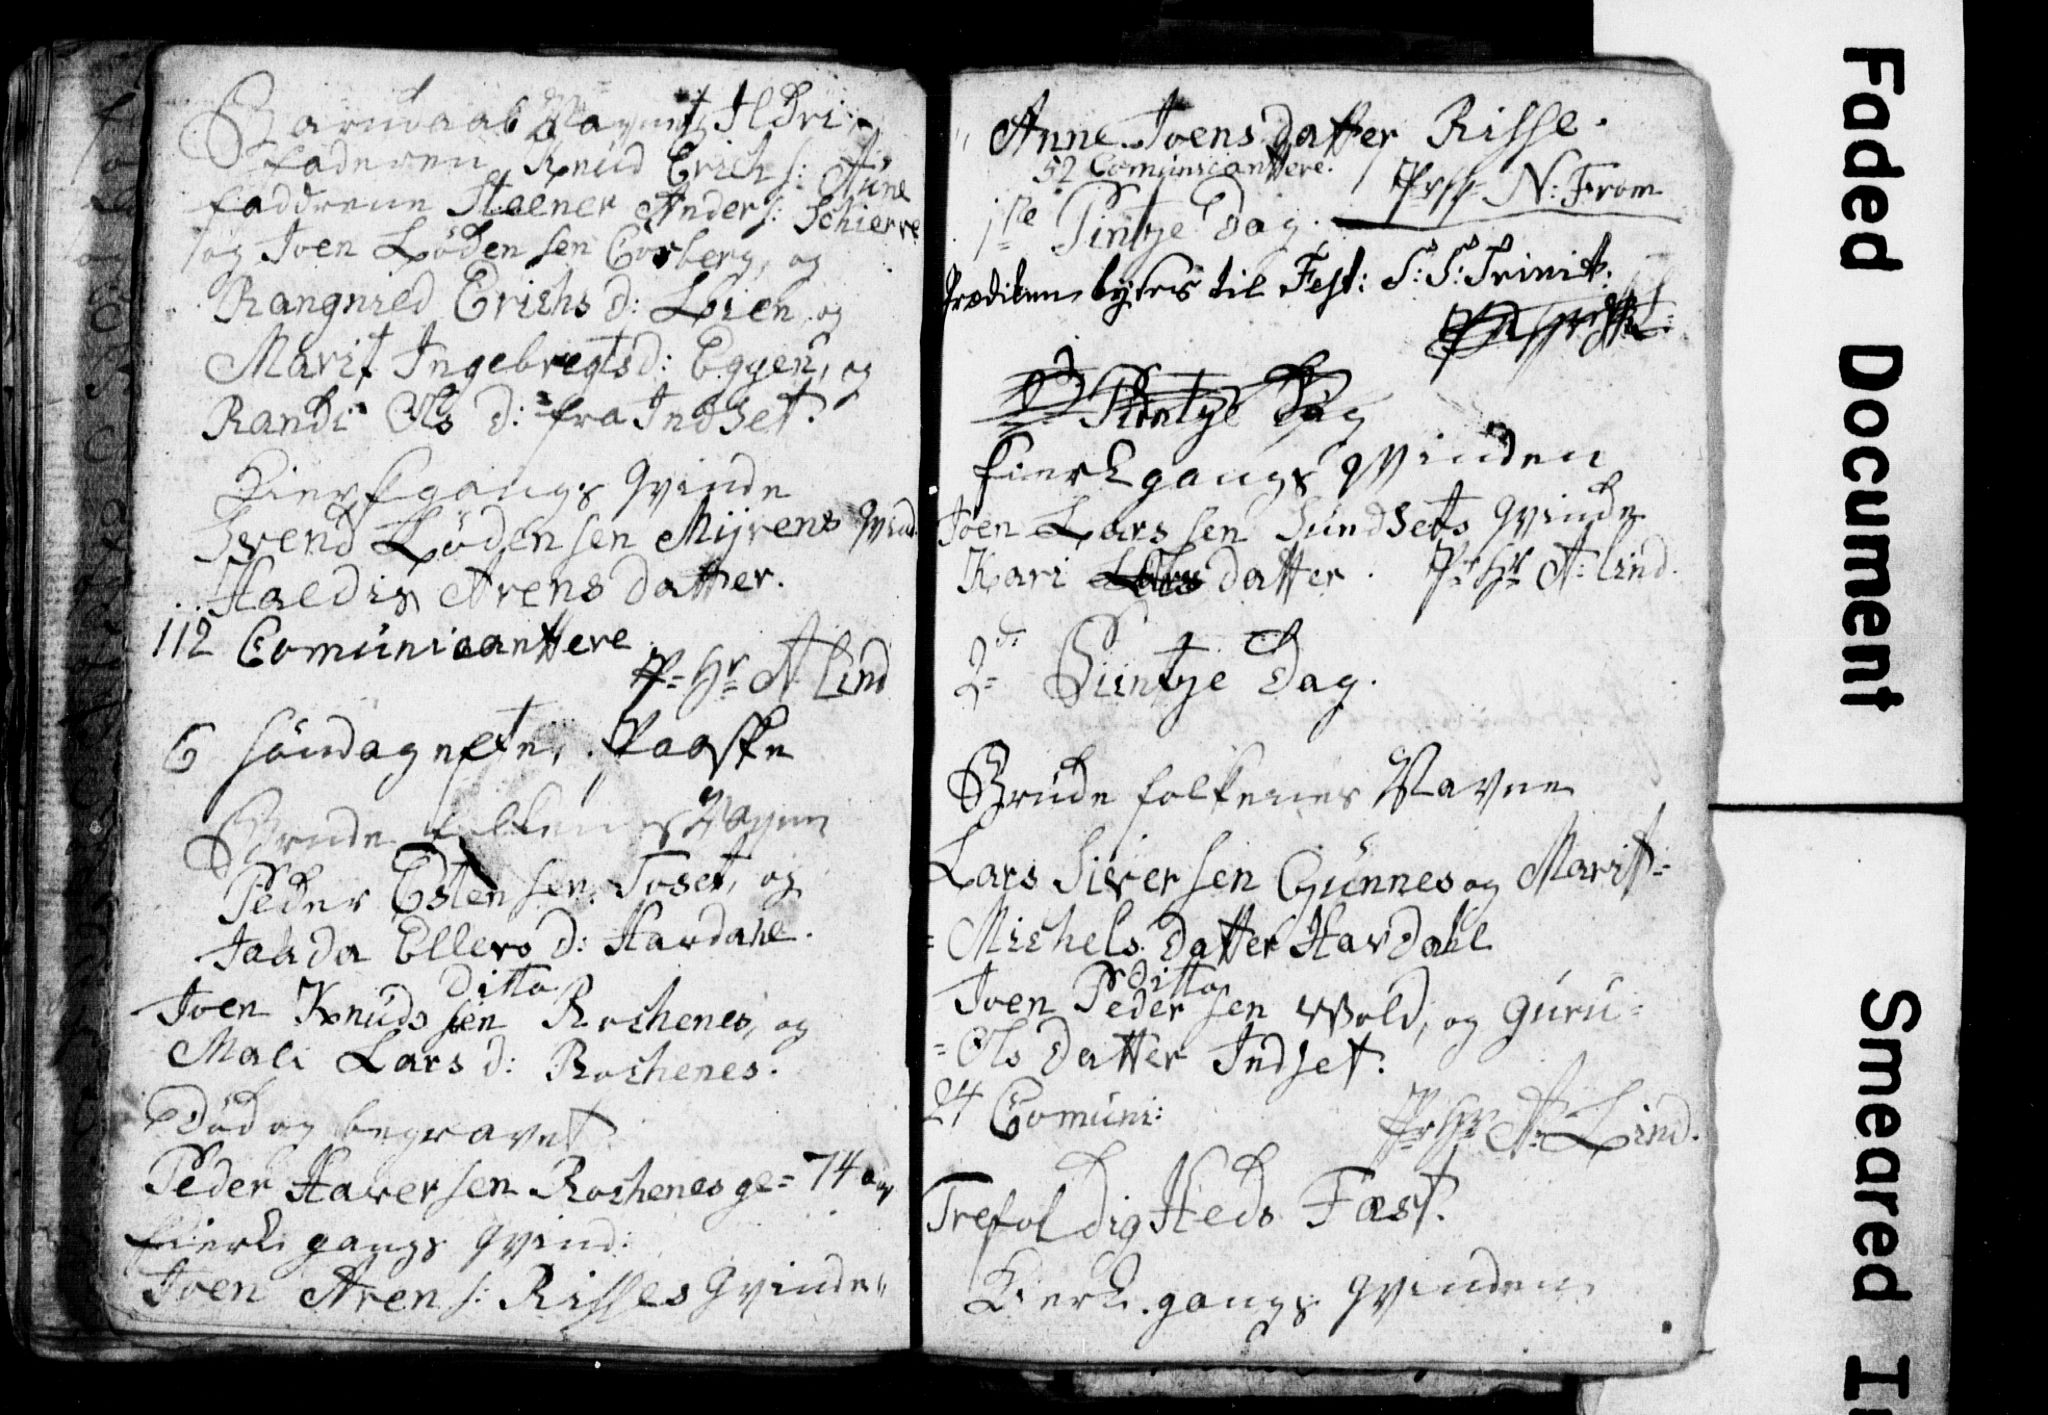 Barnedaab Navnet Ildri
Faderen Knud Erich s: Aune
Faddrene Steener Anders: Schierve
og Joen Lödensen Gorberg, og
Rangnild Erichs d: Lien, og
Marit Ingebregts d: Eggen, og
Randi Ols d: fra Indset.
Kierkgangs Qvinde
Svend Lödensen Myrens Qvind
Haldis Arens datter.
112 Comunicanttere
Pr= Hr= A. Lind
6 Söndag efter Paaske
Brude folkenes Navne
Peder Estensen Toset, og
Ellers d: Hardahl.
Ditto
Joen Knudssen Rochenes, og
Mali Lars d: Rochenes.
Död og begravet
Peder Haversen Rochenes ge= 74 aar
Kierke gangs Qvind:
Joen Aren s: Risses Qvinde
Anne Joens datter Risse.
52 Comunicanttere.
N: From
1ste Pintze Dag.
Prædiken byttes til Fest: S: S: Trinit:
Pintze Dag
Kierkgangs Qvinden
Joen Larssen Sundsets Qvinde
Kari datter. Pr Hr A: Lind.
2den Pintze Dag.
Brude folkenes Navne
Lars Siversen Gunnes og Marit=
=Michels datter Hardahl
Ditto
Joen Pedersen Wold, og Guru=
=Ols datter Indset.
24 Comuni:
Pr Hr A: Lind.
TrefoldigHeds Fæst.
Kierke gangs Qvinden
Faded Document
Smeared In